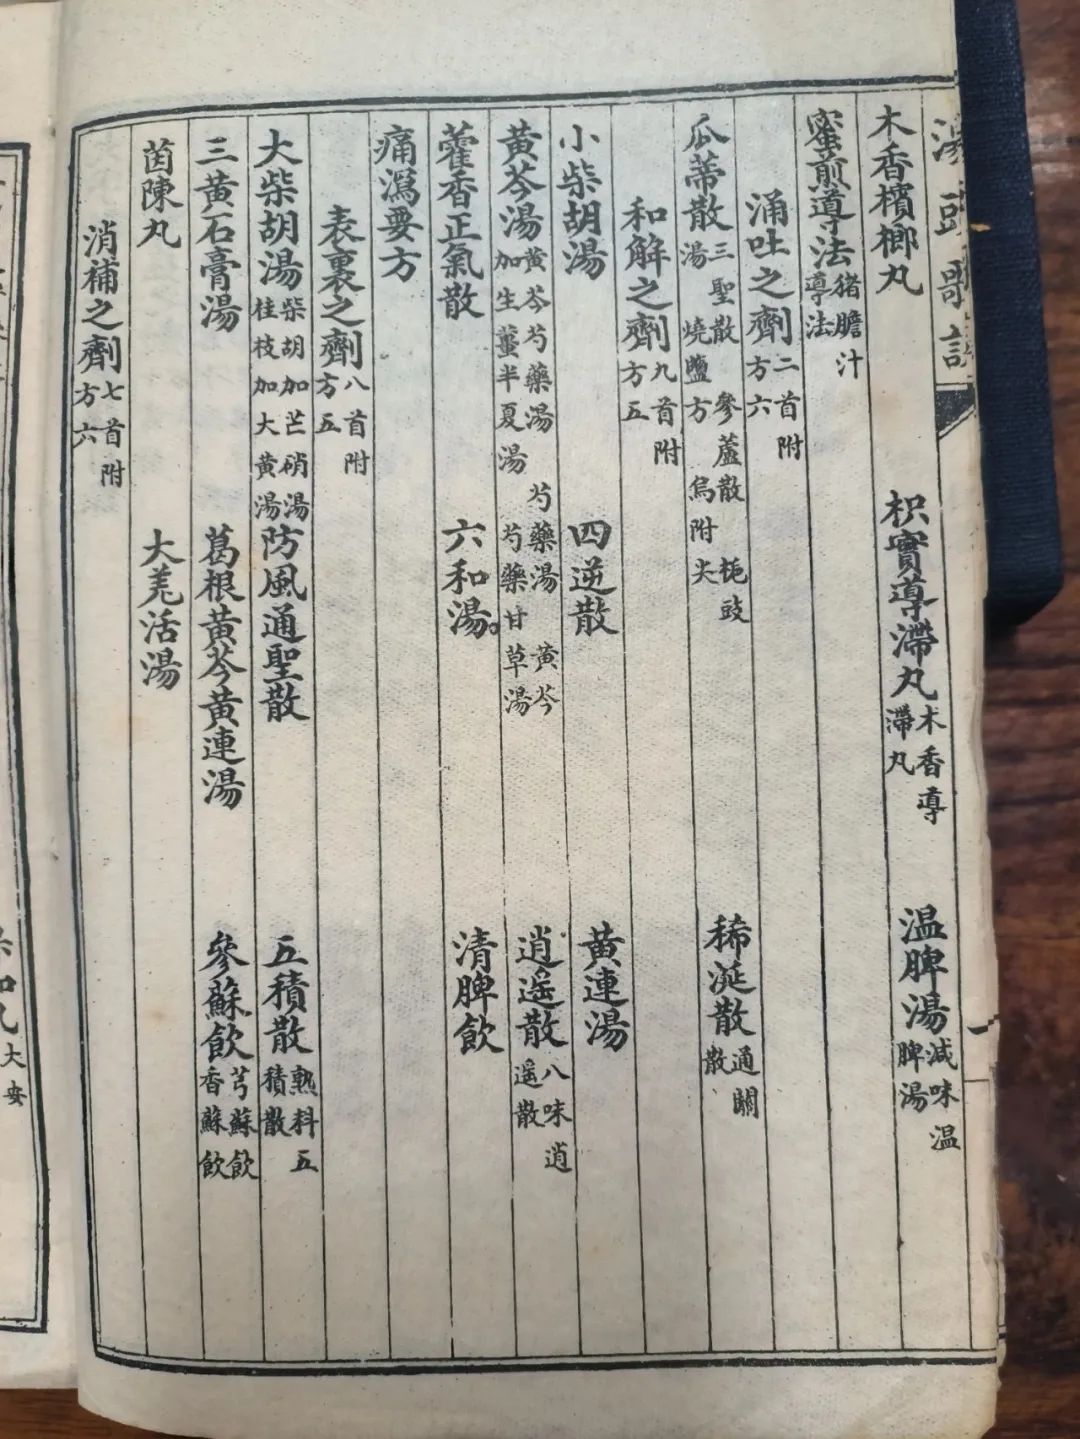 湯頭歌訣
木香檳榔丸 枳實導滯丸 木香導滯丸 温脾湯 減味温脾湯
蜜煎導法 猪膽汁導法
涌吐之劑 二首附方六
瓜蒂散 三聖散 參蘆散 梔豉湯 燒鹽方 烏附尖 稀涎散 通關散
和解之劑 九首附方五
小柴胡湯 四逆散 黄連湯
黄芩湯 黄芩芍藥湯 芍藥湯 黄芩加生薑半夏湯 芍藥甘草湯 逍遥散 八味逍遥散
藿香正氣散 六和湯 清脾飲
痛瀉要方
表裏之劑 八首附方五
大柴胡湯 柴胡加芒硝湯 桂枝加大黄湯 防風通聖散 五積散 熟料五積散
三黄石膏湯 葛根黄芩黄連湯 參蘇飲 芎蘇飲 香蘇飲
茵陳丸 大羌活湯
消補之劑 七首附方六
大安